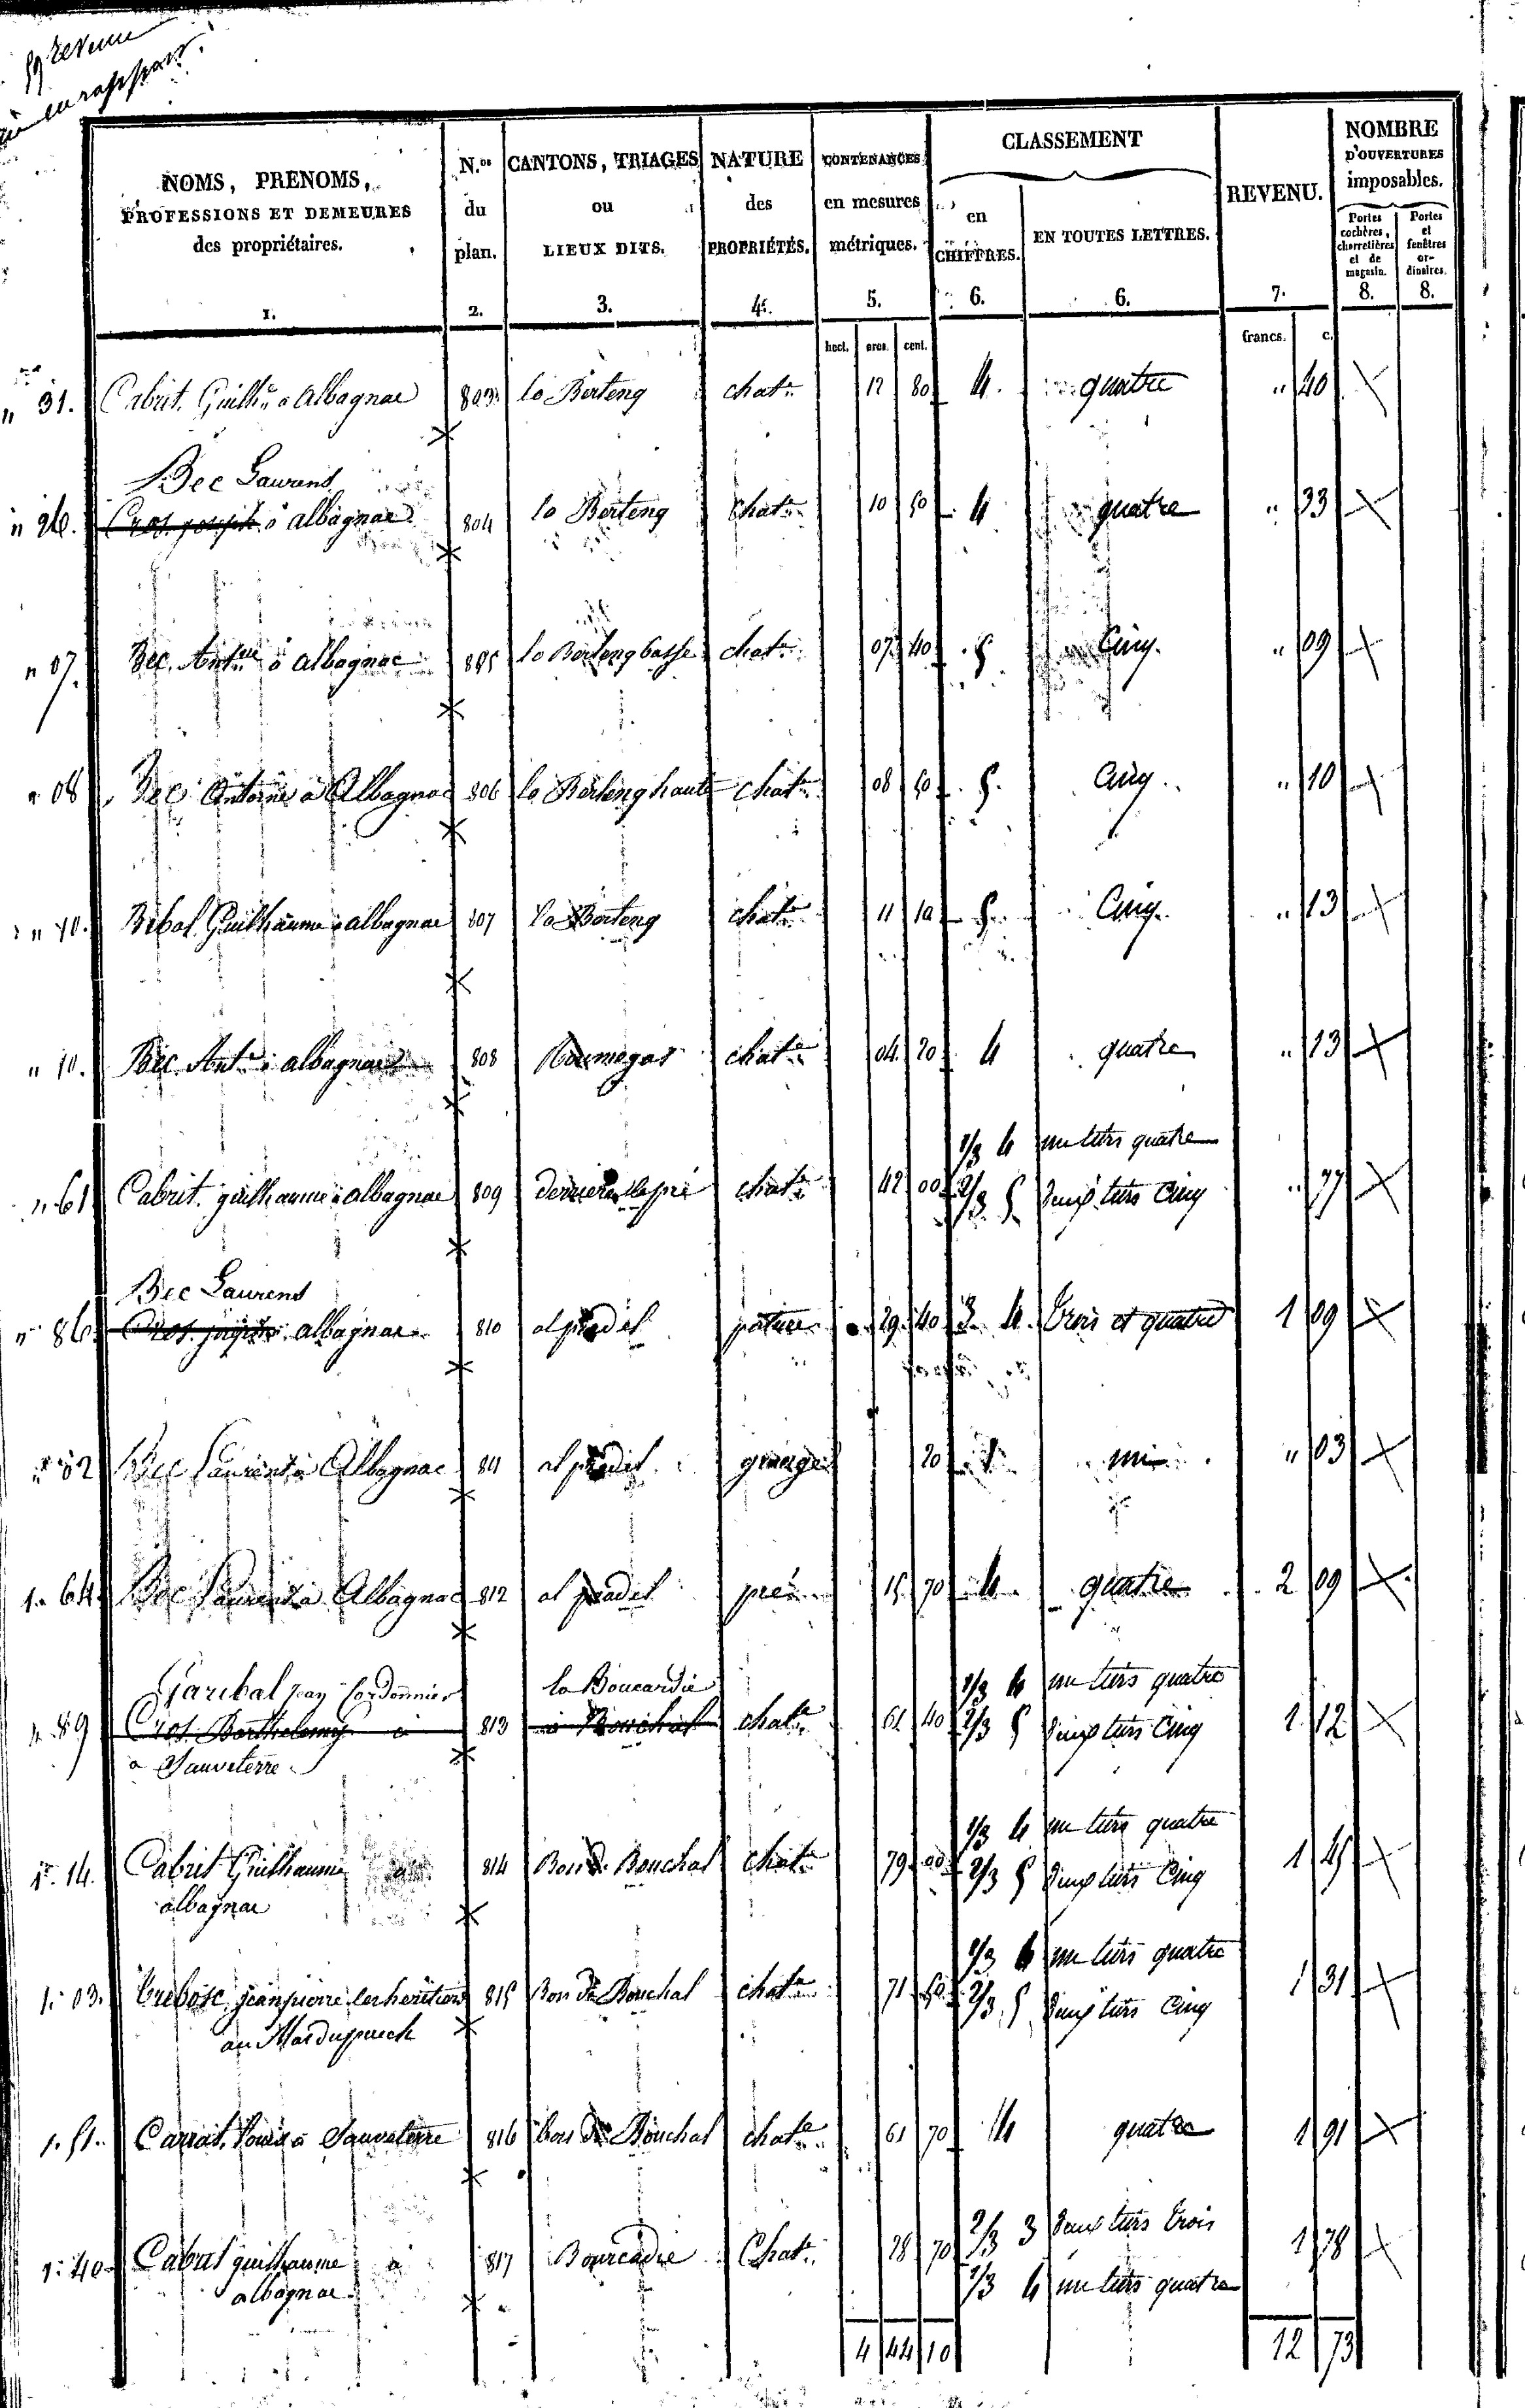 revenu
en rapport
NOMS, PRENOMS, PROFESSIONS ET DEMEURES des propriétaires. 1.
N.os du plan. 2.
CANTONS, TRIAGES ou LIEUX DITS. 3.
NATURE des PROPRIÉTÉS. 4.
CONTENANCES en mesures métriques. 5.
CLASSEMENT
en CHIFFRES. 6.
EN TOUTES LETTRES. 6.
REVENU. 7.
NOMBRE D'OUVERTURES imposables.
Portes cochères, charretières et de magasin. 8.
Portes et fenêtres ordinaires. 8.
hect. ares. cent. francs. c.
" 31. Cabrit Guilh.e a Albagnac 803 lo Berteng chat.e 12 80 4. quatre " 40
Bec Laurens
" 26. Cros joseph à albagnac 804 lo Berteng chat.e 10 50 4 quatre " 33
" 07. Bec Ant.ne à albagnac 805 lo Berteng basse chat.e 07 40 5. Cinq. " 09
" 08 Bec Antoine à Albagnac 806 lo Berteng haute chat.e 08 50 5. Cinq. " 10
" 10. Bibal Guilhaume a albagnac 807 lo Berteng chat.e 11 10 5. Cinq. " 13
" 10. Bec Ant.e à albagnac 808 Roumegas chat.e 04 20 4 quatre " 13
1/3 4 un tiers quatre
" 61 Cabrit guilhaume à albagnac 809 derriere lepré chat.e 42 00 2/3 5 deux tiers Cinq " 77
Bec Laurens
" 86. Cros joseph à albagnac 810 al pradel pature 29 40 3. 4. trois et quatre 1 09
" 02 Bec Laurens à Albagnac 811 al pradel grange 20 1 un " 03
1. 64 Bec Laurens à Albagnac 812 al pradel pré 15 70 4 quatre 2 09
Garibal jean Cordonnier la Boucardie 1/3 4 un tiers quatre
" 89 Cros Barthelemy à 813 à Bouchal chat.e 61 40 2/3 5 deux tiers Cinq 1 12
a Sauveterre
1/3 4 un tiers quatre
1. 14. Cabrit Guilhaume a 814 Bos de Bouchal chat.e 79 00 2/3 5 deux tiers Cinq 1 45
albagnac
1/3 4 un tiers quatre
1. 03. Trebosc jean pierre les heritiers 815 Bos de Bouchal chat.e 71 50 2/3 5 deux tiers Cinq 1 31
au Mas dupuech
1. 51. Carrat Louis a Sauveterre 816 bos de Bouchal chat.e 61 70 4 quatre 1 91
2/3 3 deux tiers trois
1. 40 Cabrit guilhaume a 817 Bourcadie Chat.e 28 70 1/3 4 un tiers quatre 1 78
albagnac
4 44 10 12 73